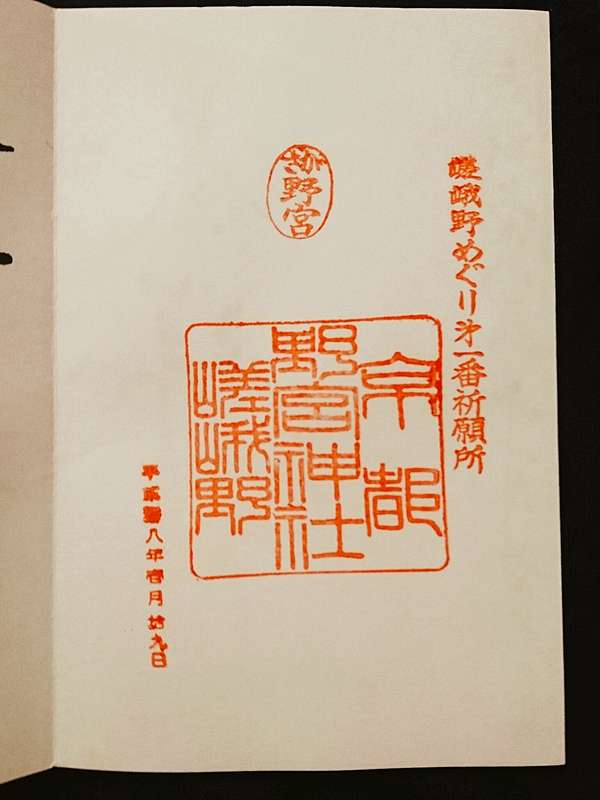 嵯峨野めぐり第一番祈願所
野宮
京都
野宮神社
嵯峨野
平成八年壱月九日